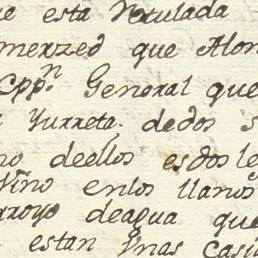 ue esta Rotulada
merzed que Alon
Cppn General que
Yurreta. dedos s
no deellos esdos le
Vino enlos llanos
arroyo deagua que
estan Unas Casi